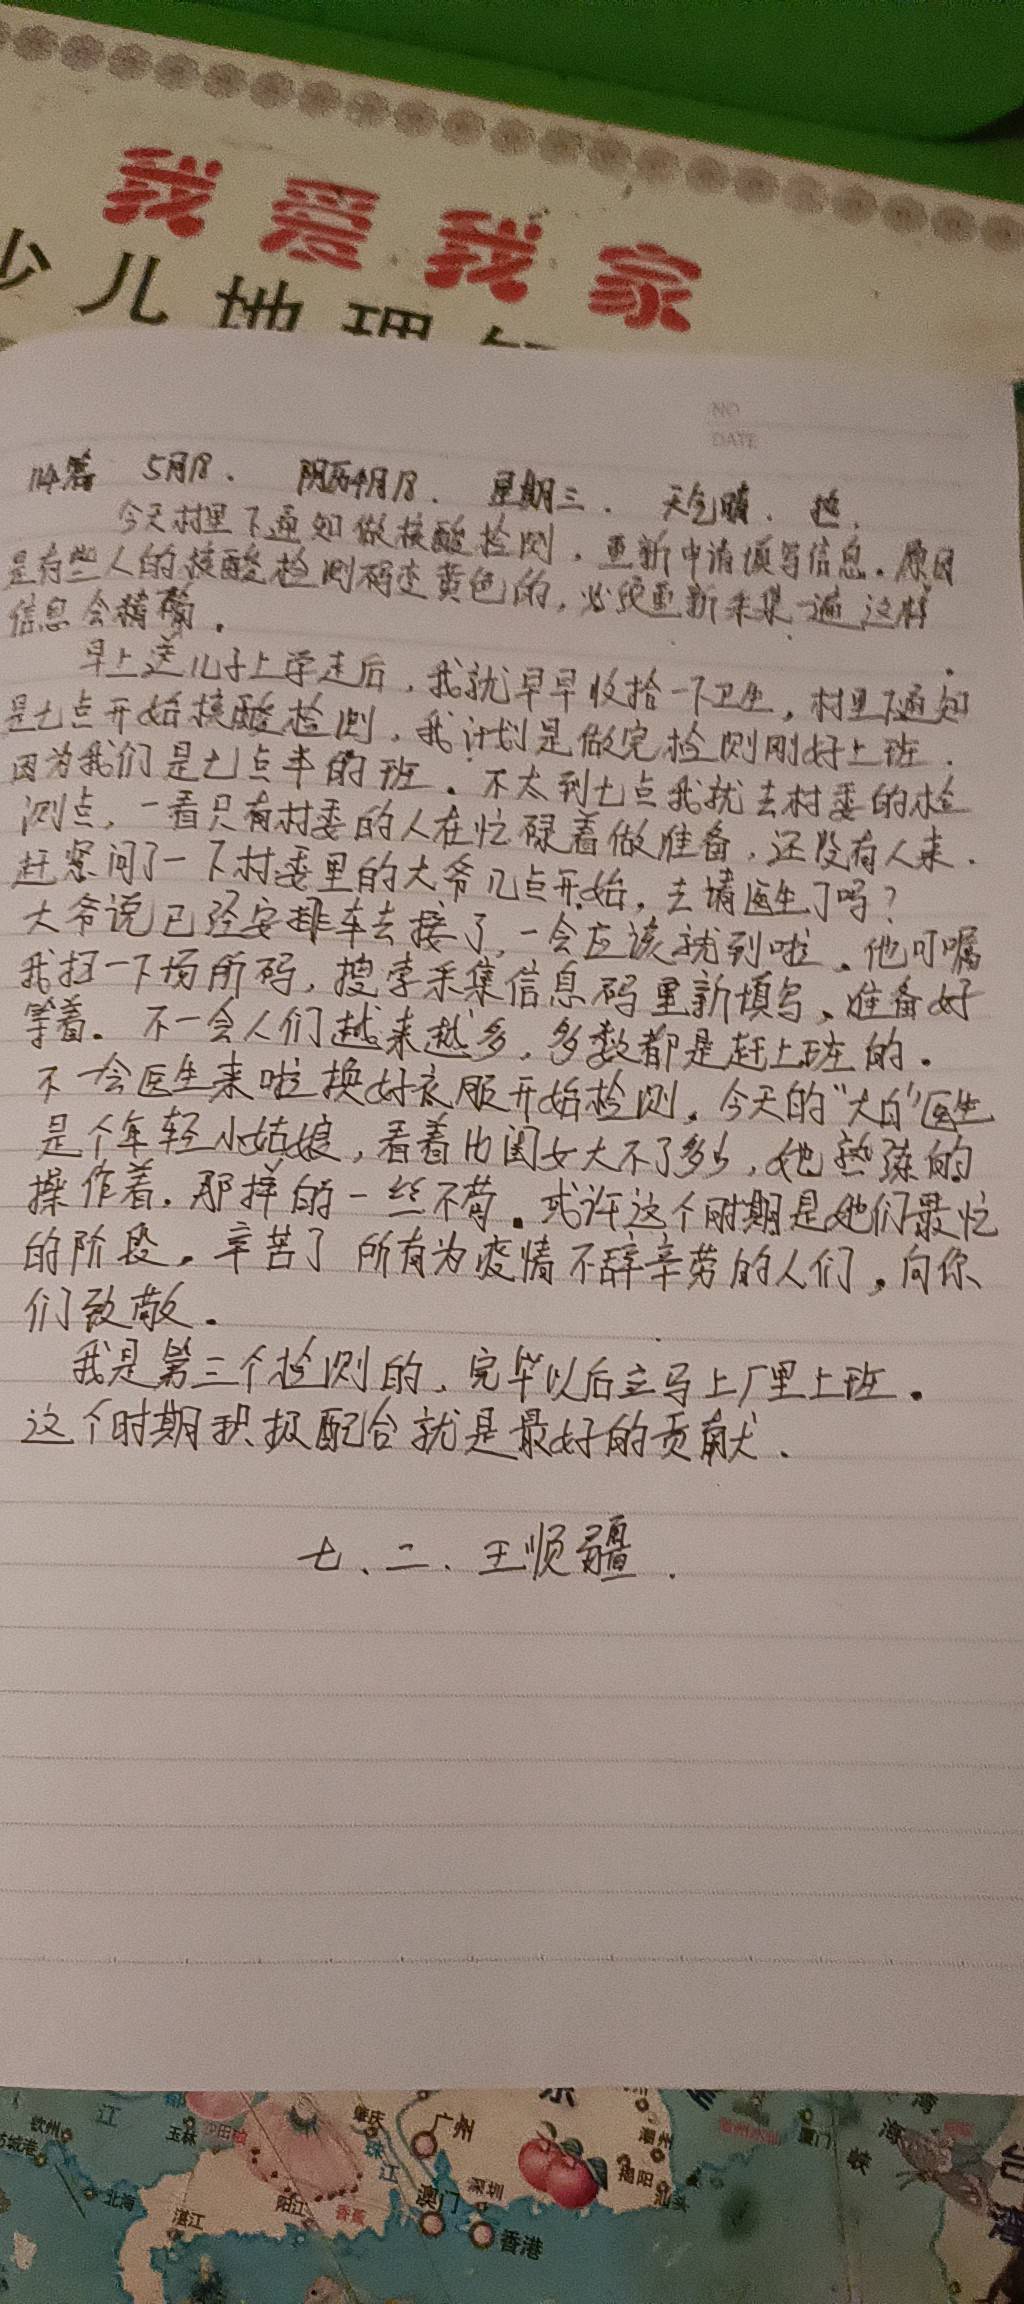 我爱我家
少儿地理
NO
DATE
114篇 5月18. 阴历4月18. 星期三. 天气晴.
今天村里下通知做核酸检测，重新申请填写信息。原因
是有些人的核酸检测码变黄色的，必须重新采集一遍这样
信息会精确。
早上送儿子上学走后，我就早早收拾一下卫生，村里下通知
是七点开始核酸检测，我计划是做完检测刚好上班.
因为我们是七点半的班。不太到七点我就去村委的检
测点，一看只有村委的人在忙碌着做准备，还没有人来.
赶紧问了一下村委里的大爷几点开始，去请医生了吗？
大爷说已经安排车去接了，一会应该就到啦。他叮嘱
我扫一下场所码，搜索采集信息码重新填写、准备好
等着。不一会人们越来越多，多数都是赶上班的。
不一会医生来啦换好衣服开始检测。今天的“大白”医生
是个年轻小姑娘，看着比闺女大不了多少，她熟练的
操作着。那样的一丝不苟。或许这个时期是她们最忙
的阶段。辛苦了所有为疫情不辞辛劳的人们，向你
们致敬。
我是第三个检测的，完毕以后立马上厂里上班。
这个时期积极配合就是最好的贡献.
七、二、王顺疆.
钦州
江
玉林
肇庆
珠
江
广州
潮州
厦门
海
峡
台
湾
北海
湛江
阳江
香蕉
澳门
深圳
香港
揭阳
汕头